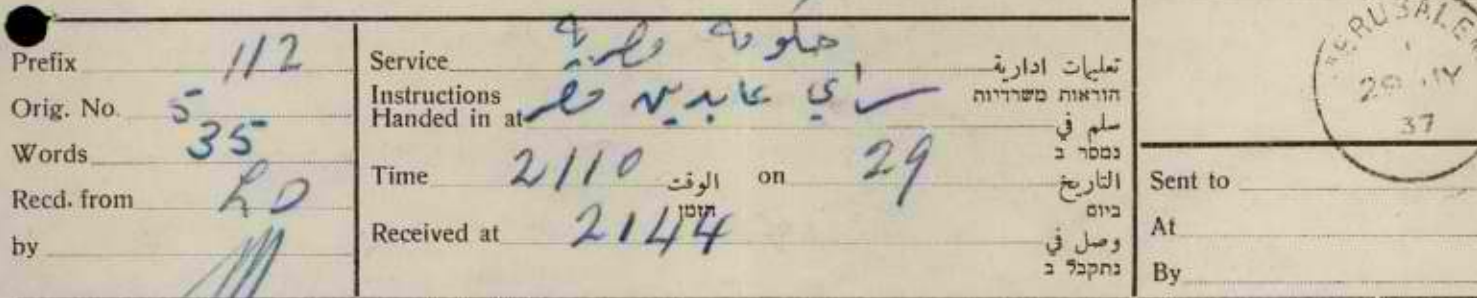 Prefix 112
Orig. No. 5
Words 35
Recd. from LD
by
Service حكومة مصرية تعليمات ادارية
Instructions הוראות משרדיות
Handed in at سراي عابدين مصر سلم في
נמסר ב
Time 2110 الوقت on 29 التاريخ
הזמן ביום
Received at 2144 وصل في
נתקבל ב
JERUSALEM
29 37
Sent to
At
By